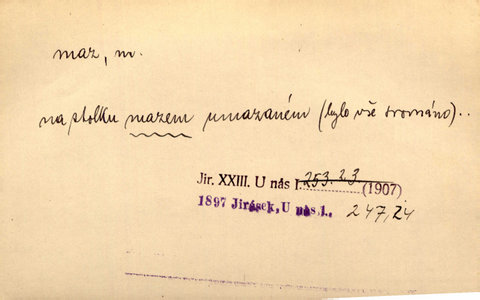 maz, m.
na stolku mazem umazaném (bylo vše srovnáno)..
Jir. XXIII. U nás I. 253.23 (1907)
1897 Jirásek, U nás, I. 247,24